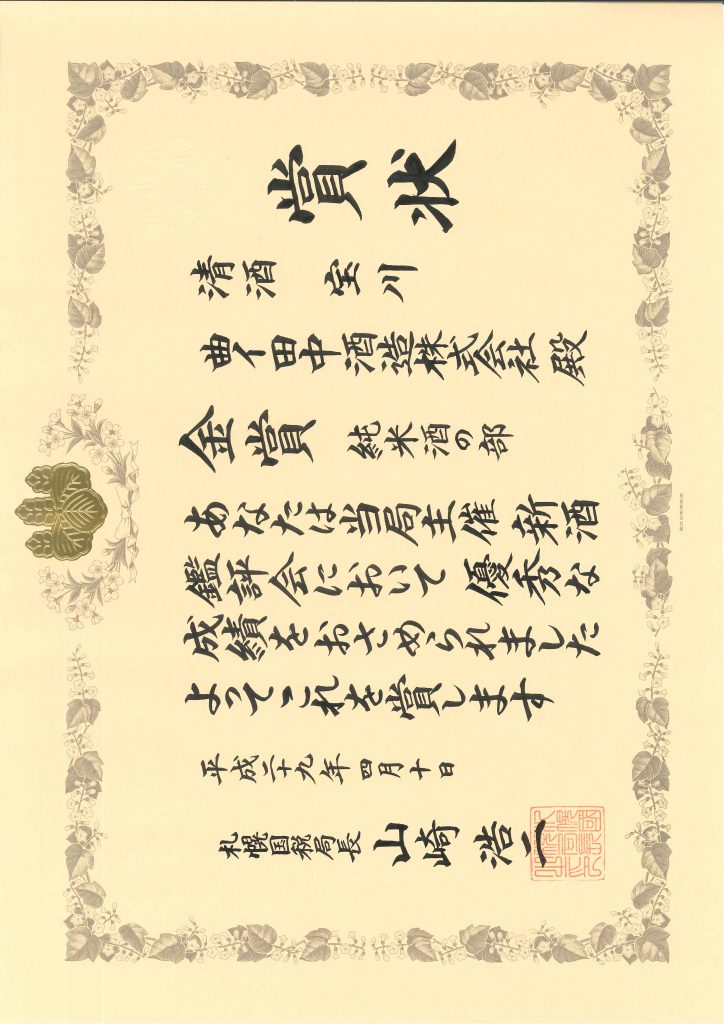 賞状
清酒 宝川
曲イ田中酒造株式会社 殿
金賞 純米酒の部
あなたは当局主催新酒
鑑評会において優秀な
成績をおさめられました
よってこれを賞します
平成二十九年四月十日
札幌国税局長 山崎 浩二